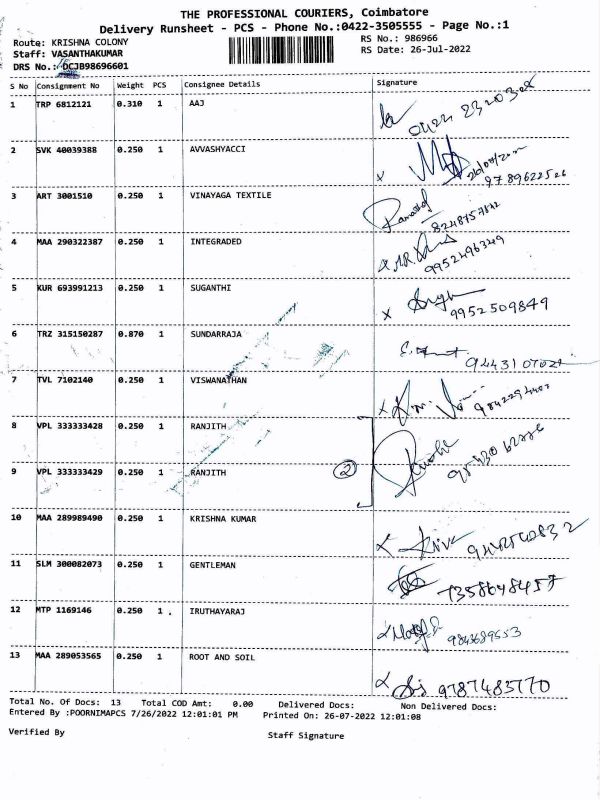 THE PROFESSIONAL COURIERS, Coimbatore
Delivery Runsheet - PCS - Phone No.:0422-3505555 - Page No.:1
Route: KRISHNA COLONY RS No.: 986966
Staff: VASANTHAKUMAR RS Date: 26-Jul-2022
DRS No.: DCJB98696601
S No Consignment No Weight PCS Consignee Details Signature
1 TRP 6812121 0.310 1 AAJ
2 SVK 40039388 0.250 1 AVVASHYACCI
9789622526
3 ART 3001510 0.250 1 VINAYAGA TEXTILE
4 MAA 290322387 0.250 1 INTEGRADED
9952496349
5 KUR 693991213 0.250 1 SUGANTHI
9952509849
6 TRZ 315150287 0.870 1 SUNDARRAJA
7 TVL 7102140 0.250 1 VISWANATHAN
8 VPL 333333428 0.250 1 RANJITH
9 VPL 333333429 0.250 1 RANJITH 2
10 MAA 289989490 0.250 1 KRISHNA KUMAR
11 SLM 300082073 0.250 1 GENTLEMAN
7358648457
12 MTP 1169146 0.250 1 IRUTHAYARAJ
9843689553
13 MAA 289053565 0.250 1 ROOT AND SOIL
9787483770
Total No. Of Docs: 13 Total COD Amt: 0.00 Delivered Docs: Non Delivered Docs:
Entered By :POORNIMAPCS 7/26/2022 12:01:01 PM Printed On: 26-07-2022 12:01:08
Verified By Staff Signature